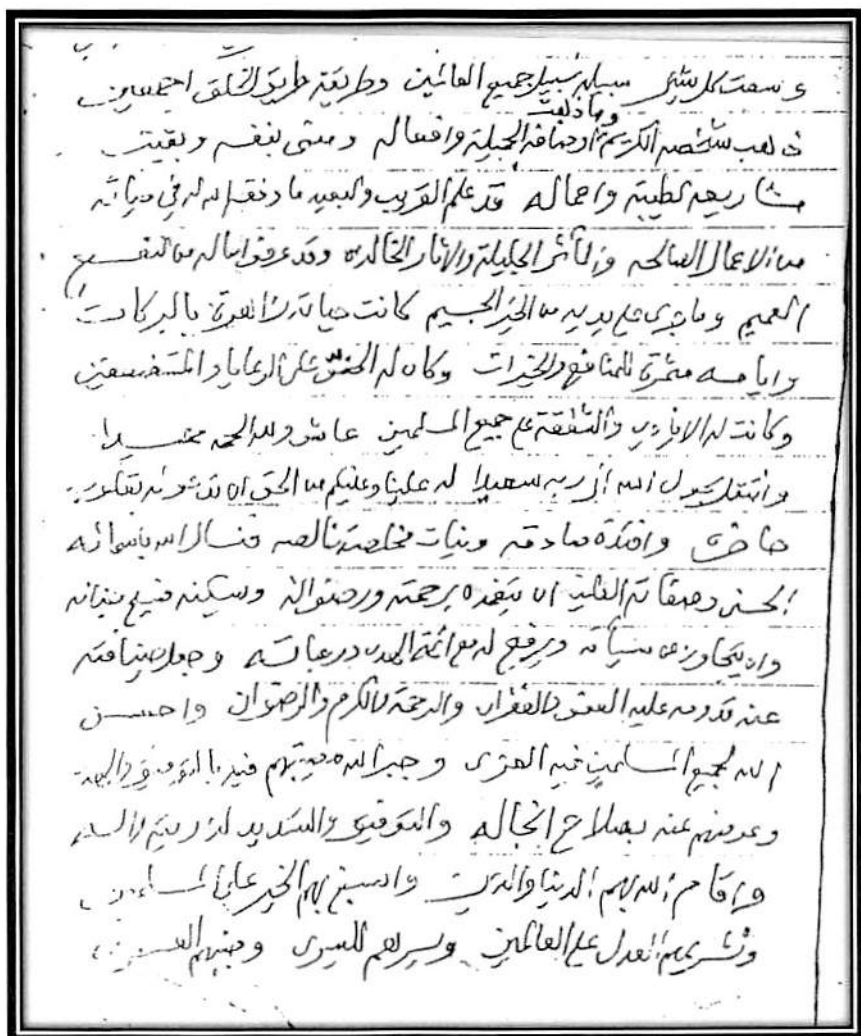 وسعت كل شيء سبيله سبيل جميع العالمين وطريقة طريق الخلق اجمعين
ذهب شخصه الكريم وما ذهبت أوصافه الجميلة وافعاله ومضى بنفسه وبقيت
مشاريعه الطيبة واعماله قد علم القريب والبعيد ما وفقه الله له في حياته
من الاعمال الصالحه والمآثر الجليلة والاثار الخالده وقد عرفوا ماله من النفع
العميم وما جرى على يديه من الخير الجسيم كانت حياته زاهرة بالبركات
وايامه مثمرة للمنافع والخيرات وكان له الحنو على الرعايا والمستضعفين
وكانت له الايادي والشفقة على جميع المسلمين عاش ولله الحمد حميدا
وانتقل الله إلى ربه سعيدا له علينا وعليكم من الحق ان ندعو له بقلوب
حاضرة وافئدة صادقه ونيات مخلصة فنسال الله باسمائه
الحسنى وصفاته العليا ان يتغمده برحمته ورضوانه ويسكنه فسيح جنانه
وان يتجاوز عن سيئاته ويرفع له مع ائمة الهدى درجاته وجعل ضيافته
عند قدومه عليه العفو والغفران والرحمة والكرم والرضوان واحسن
الله لجميع المسلمين فيه العزى وجبر الله مصيبتهم فيه
وعوضهم عنه بصلاح انجاله والتوفيق والتسديد
واقام الله بهم الدنيا والدين واسبغ بهم الخير على المسلمين
ونشر بهم العدل على العالمين ويسرهم لليسرى وجنبهم العسرى